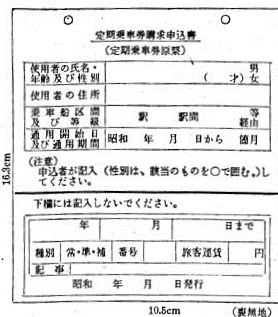 定期乗車券購求申込書
(定期乗車券原票)
使用者の氏名・年齢及び性別 ( 才) 男 女
使用者の住所
乗車船区間及び等級 駅 駅間 等 経由
通用開始日及び通用期間 昭和 年 月 日から 箇月
(注意)
申込者が記入(性別は、該当のものを○で囲む。)してください。
下欄には記入しないでください。
年 月 日まで
種別 常・準・補 番号 旅客運賃 円
記事
昭和 年 月 日発行
16.3cm
10.5cm
(裏無地)